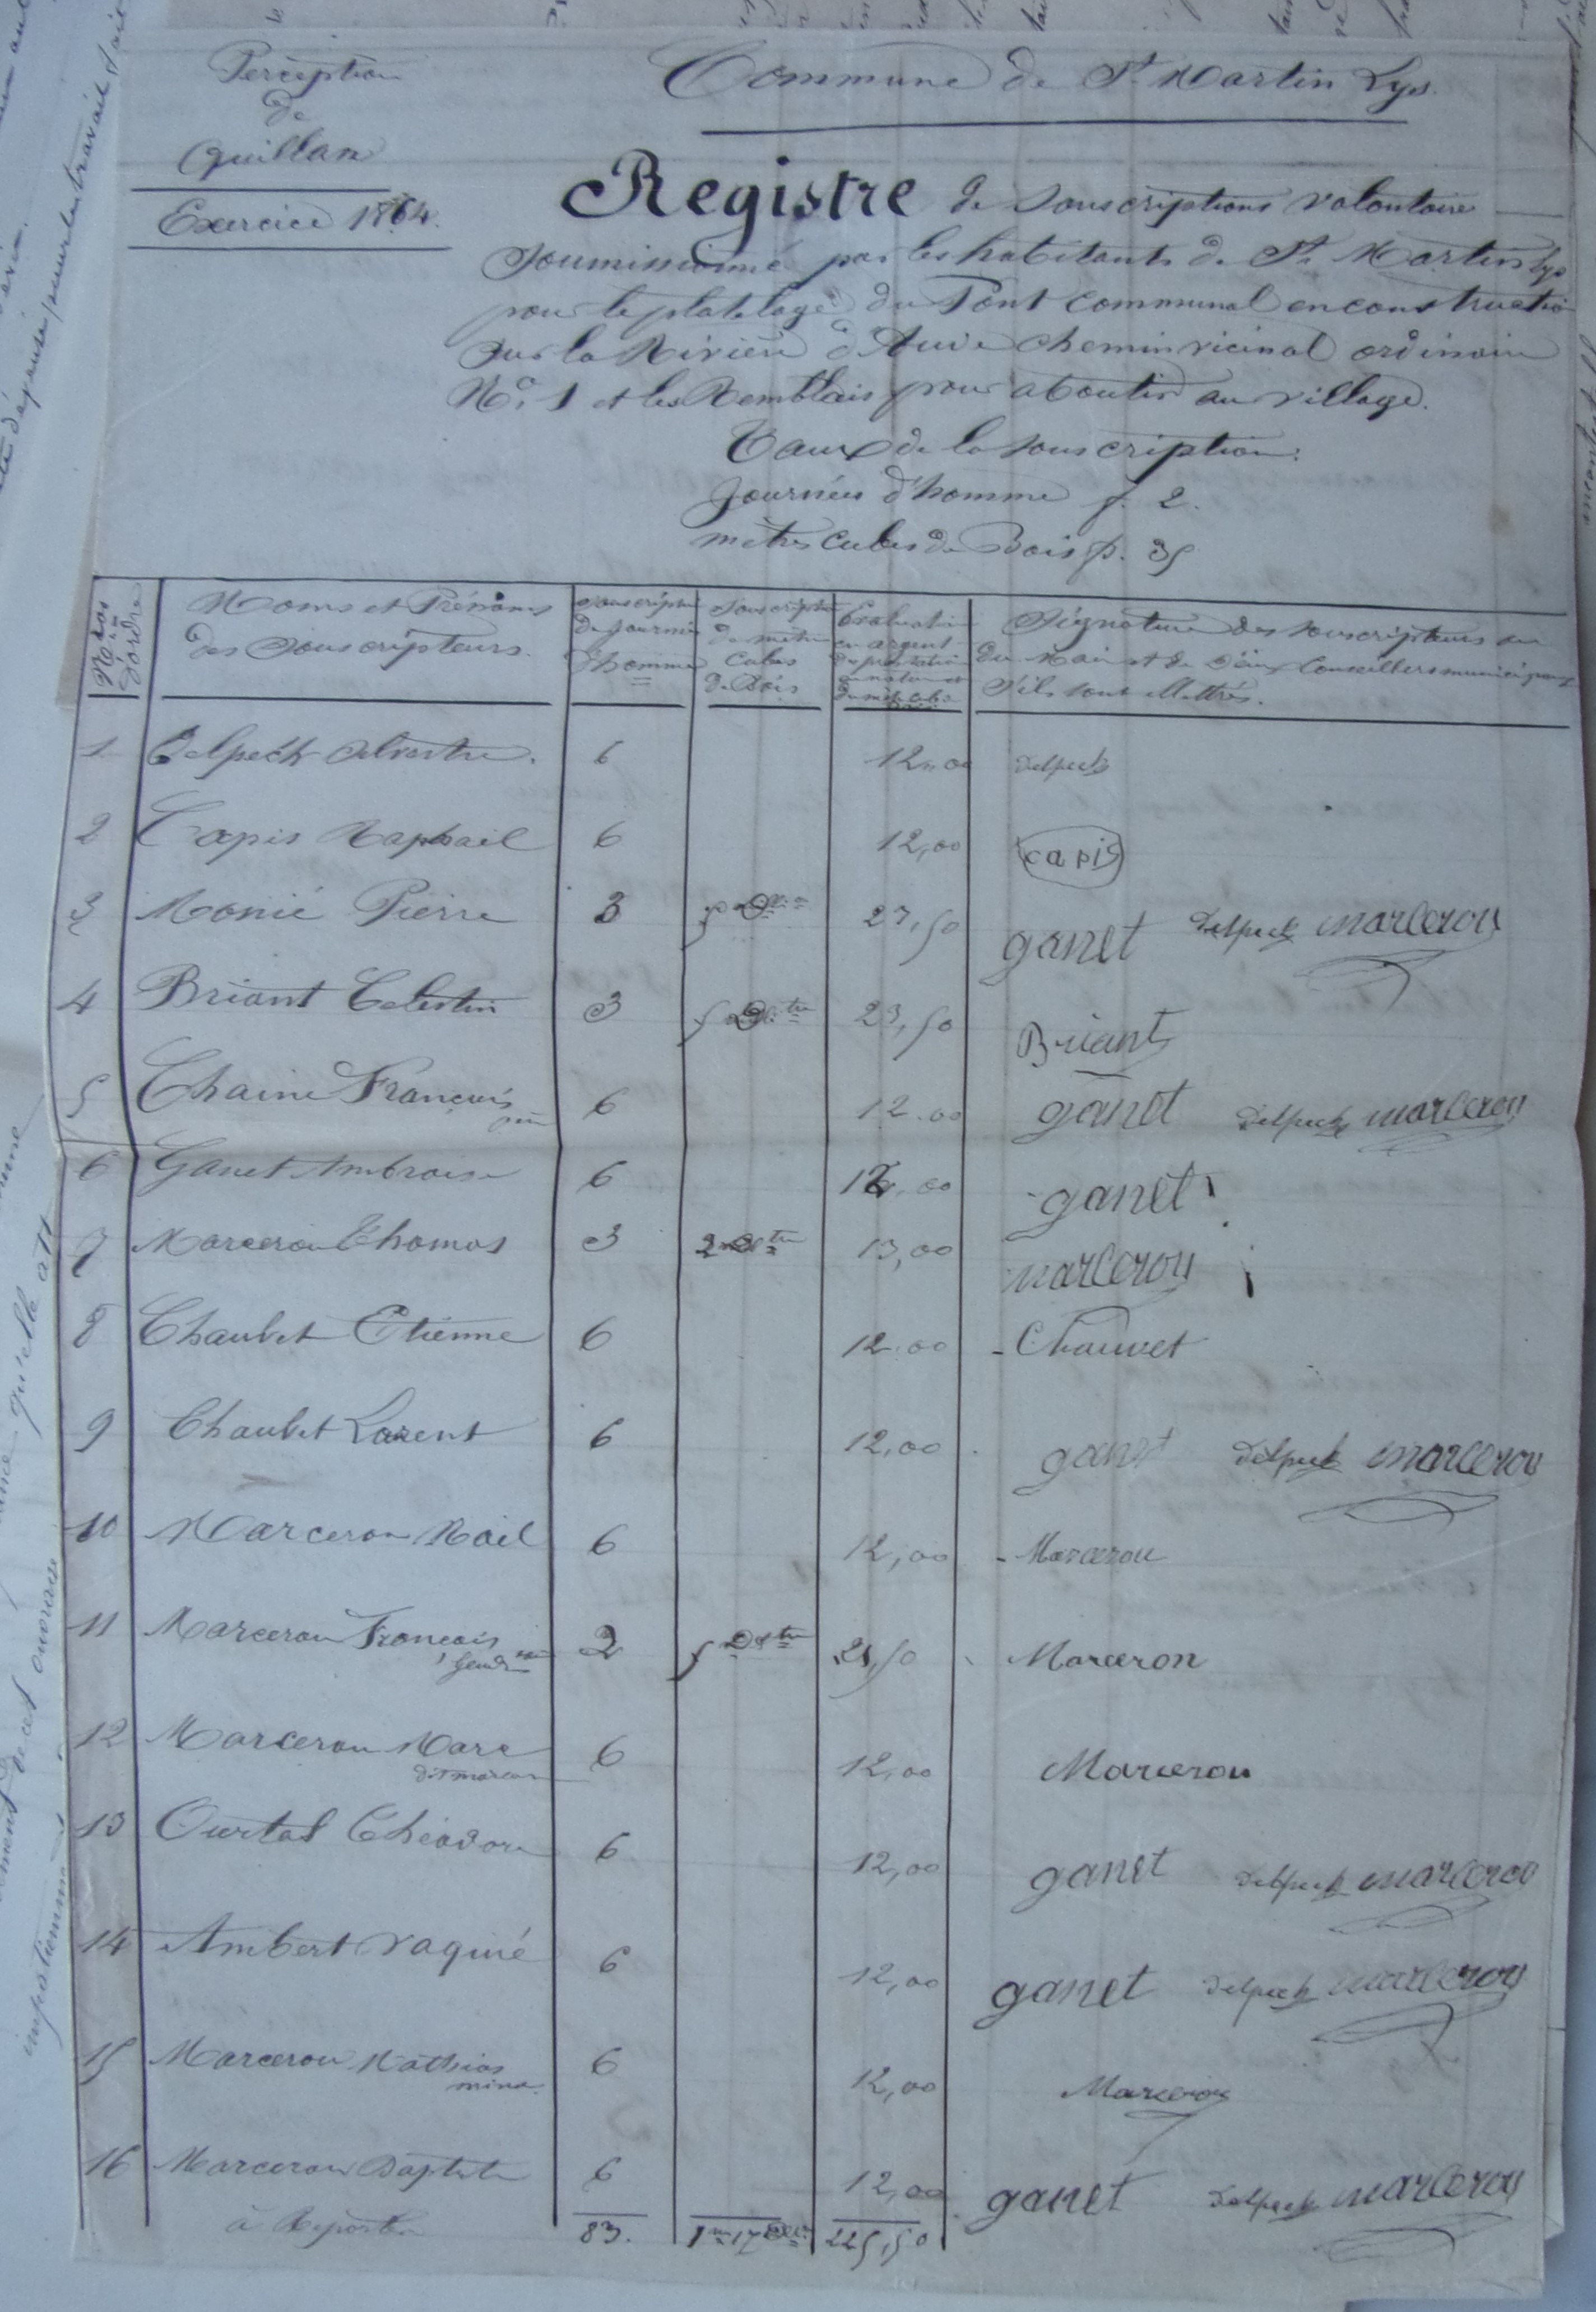 Perception
de
Quillan
Exercice 1864.
Commune de St Martin Lys.
Registre de souscriptions volontaire
Soumissionné par les habitants de St Martin Lys
pour le platelage du Pont communal en construction
sur la Rivière d'Aude chemin vicinal ordinaire
No. 1 et les Remblais pour aboutir au village.
Taux de la souscription:
Journées d'homme f. 2.
mètres cubes de Bois f. 35
Nos d'ordre | Noms et Prénoms des Souscripteurs. | Souscription de journées d'homme | Souscription de mètres cubes de Bois | Evaluation en argent | Signature des souscripteurs ou du Maire et de deux Conseillers municipaux s'ils sont illettrés.
1 Delpech Silvestre. 6 12,00 Delpech
2 Capis Raphaël 6 12,00 capis
3 Monié Pierre 3 5 23,50 ganet Delpech marcerou
4 Briant Celestin 3 5 23,50 Briant
5 Chaine François 6 12.00 ganet Delpech marcerou
6 Ganet Ambroise 6 12,00 ganet
7 Marcerou Thomas 3 2 13,00 marcerou
8 Chaubet Etienne 6 12.00 Chauvet
9 Chaubet Lorent 6 12,00 ganet Delpech marcerou
10 Marcerou Noël 6 12,00 Marcerou
11 Marcerou François 2 5 21,50 Marceron
12 Marcerou Marc 6 12,00 Marcerou
13 Ourtal Théodore 6 12,00 ganet Delpech marcerou
14 Ambert vaquié 6 12,00 ganet Delpech marcerou
15 Marcerou Mathias 6 12,00 Marcerou
16 Marcerou Baptiste 6 12,00 ganet Delpech marcerou
à Reporter 83. 1m 17 225,50